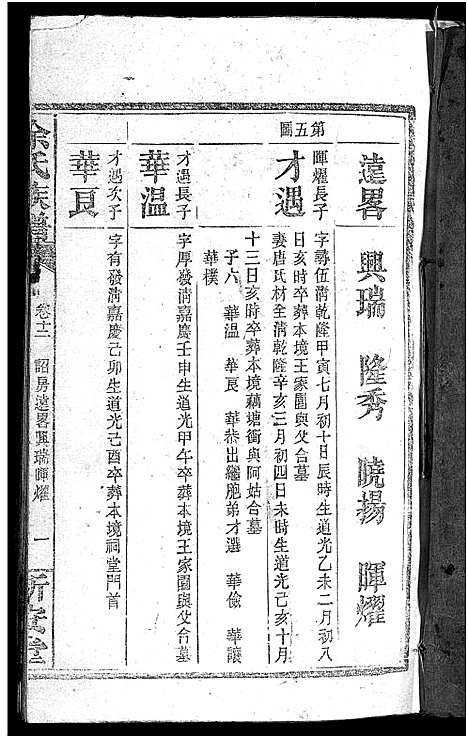 遠畧 興瑞 隆秀 曉揚 暉耀
第五圖
才遇
暉耀長子
字尋伍清乾隆甲寅七月初十日辰時生道光乙未二月初八
日亥時卒葬本境王家園與父合墓
妻唐氏材全清乾隆辛亥三月初四日未時生道光己亥十月
十三日亥時卒葬本境藕塘衝與阿姑合墓
子六 華溫 華良 華恭出繼胞弟才選 華儉 華讓
華樸
華溫
才遇長子
字厚發清嘉慶壬申生道光甲午卒葬本境王家園與父合墓
華良
才遇次子
字有發清嘉慶己卯生道光己酉卒葬本境祠堂門首
余氏族譜
卷十二 詔房遠畧興瑞暉耀 一
新安堂